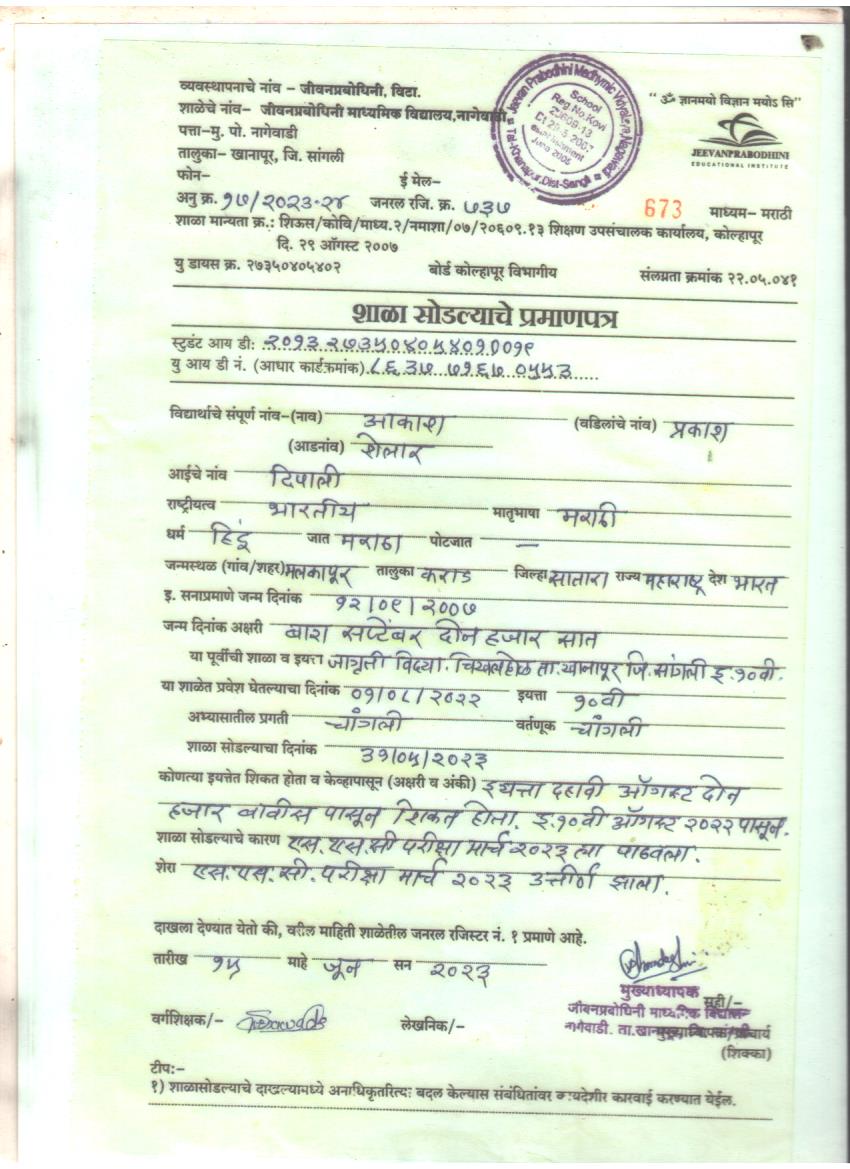 व्यवस्थापनाचे नांव - जीवनप्रबोधिनी, विटा.
शाळेचे नांव- जीवनप्रबोधिनी माध्यमिक विद्यालय,नागेवाडी
पत्ता-मु. पो. नागेवाडी
तालुका- खानापूर, जि. सांगली
फोन- ई मेल-
Jeevan Prabodhini Madhymic Vidyalaya Nagewadi
Tal-Khanapur, Dist-Sangli
School
Reg.No.Kovi
20609-13
Dt 29-8-2007
June 2006
"ॐ ज्ञानमयो विज्ञान मयोऽ सि"
JEEVANPRABODHINI
EDUCATIONAL INSTITUTE
अनु क्र. १७/२०२३-२४ जनरल रजि. क्र. ७३७ 673 माध्यम- मराठी
शाळा मान्यता क्र.: शिऊस/कोवि/माध्य.२/नमाशा/०७/२०६०९.१३ शिक्षण उपसंचालक कार्यालय, कोल्हापूर
दि. २९ ऑगस्ट २००७
यु डायस क्र. २७३५०४०५४०२ बोर्ड कोल्हापूर विभागीय संलग्नता क्रमांक २२.०५.०४१
शाळा सोडल्याचे प्रमाणपत्र
स्टुडंट आय डी: २०१३२७३५०४०५४०१००१९
यु आय डी नं. (आधार कार्डक्रमांक) ८६३७ ७१६७ ०५५३
विद्यार्थाचे संपूर्ण नांव-(नाव) आकाश (वडिलांचे नांव) प्रकाश
(आडनांव) शेलार
आईचे नांव दिपाली
राष्ट्रीयत्व भारतीय मातृभाषा मराठी
धर्म हिंदू जात मराठा पोटजात —
जन्मस्थळ (गांव/शहर) मलकापूर तालुका कराड जिल्हा सातारा राज्य महाराष्ट्र देश भारत
इ. सनाप्रमाणे जन्म दिनांक १२/०९/२००७
जन्म दिनांक अक्षरी बारा सप्टेंबर दोन हजार सात
या पूर्वीची शाळा व इयत्ता जागृती विद्या. चिखलहोळ ता.खानापूर जि.सांगली इ.१०वी.
या शाळेत प्रवेश घेतल्याचा दिनांक ०१/०८/२०२२ इयत्ता १०वी
अभ्यासातील प्रगती चांगली वर्तणूक चांगली
शाळा सोडल्याचा दिनांक ३१/०५/२०२३
कोणत्या इयत्तेत शिकत होता व केव्हापासून (अक्षरी व अंकी) इयत्ता दहावी ऑगस्ट दोन
हजार बावीस पासून शिकत होता. इ.१०वी ऑगस्ट २०२२ पासून.
शाळा सोडल्याचे कारण एस.एस.सी परीक्षा मार्च २०२३ ला पाठवला.
शेरा एस.एस.सी.परीक्षा मार्च २०२३ उत्तीर्ण झाला.
दाखला देण्यात येतो की, वरील माहिती शाळेतील जनरल रजिस्टर नं. १ प्रमाणे आहे.
तारीख १५ माहे जून सन २०२३
मुख्याध्यापक सही/-
जीवनप्रबोधिनी माध्यमिक विद्यालय
नागेवाडी. ता.खानापूर
वर्गशिक्षक/- लेखनिक/-
(शिक्का)
टीप:-
१) शाळासोडल्याचे दाखल्यामध्ये अनाधिकृतरित्या बदल केल्यास संबंधितांवर कायदेशीर कारवाई करण्यात येईल.